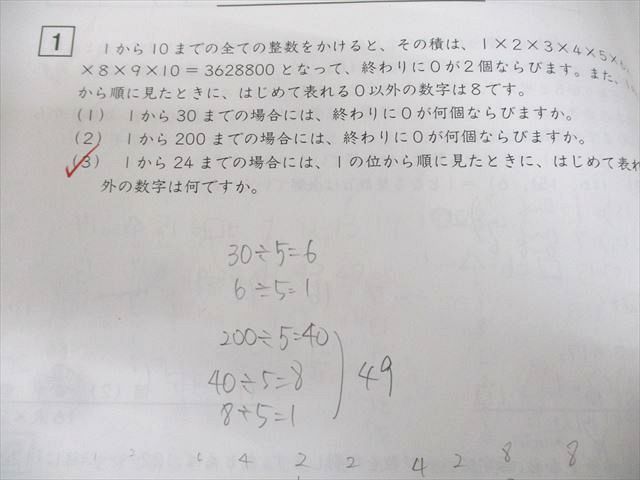 1
1から10までの全ての整数をかけると、その積は、1×2×3×4×5×6
×8×9×10=3628800となって、終わりに0が2個ならびます。また、1
から順に見たときに、はじめて表れる0以外の数字は8です。
(1) 1から30までの場合には、終わりに0が何個ならびますか。
(2) 1から200までの場合には、終わりに0が何個ならびますか。
(3) 1から24までの場合には、1の位から順に見たときに、はじめて表れ
外の数字は何ですか。
30÷5=6
6÷5=1
200÷5=40
40÷5=8
8÷5=1
49
1 2 6 4 2 2 4 2 8 8